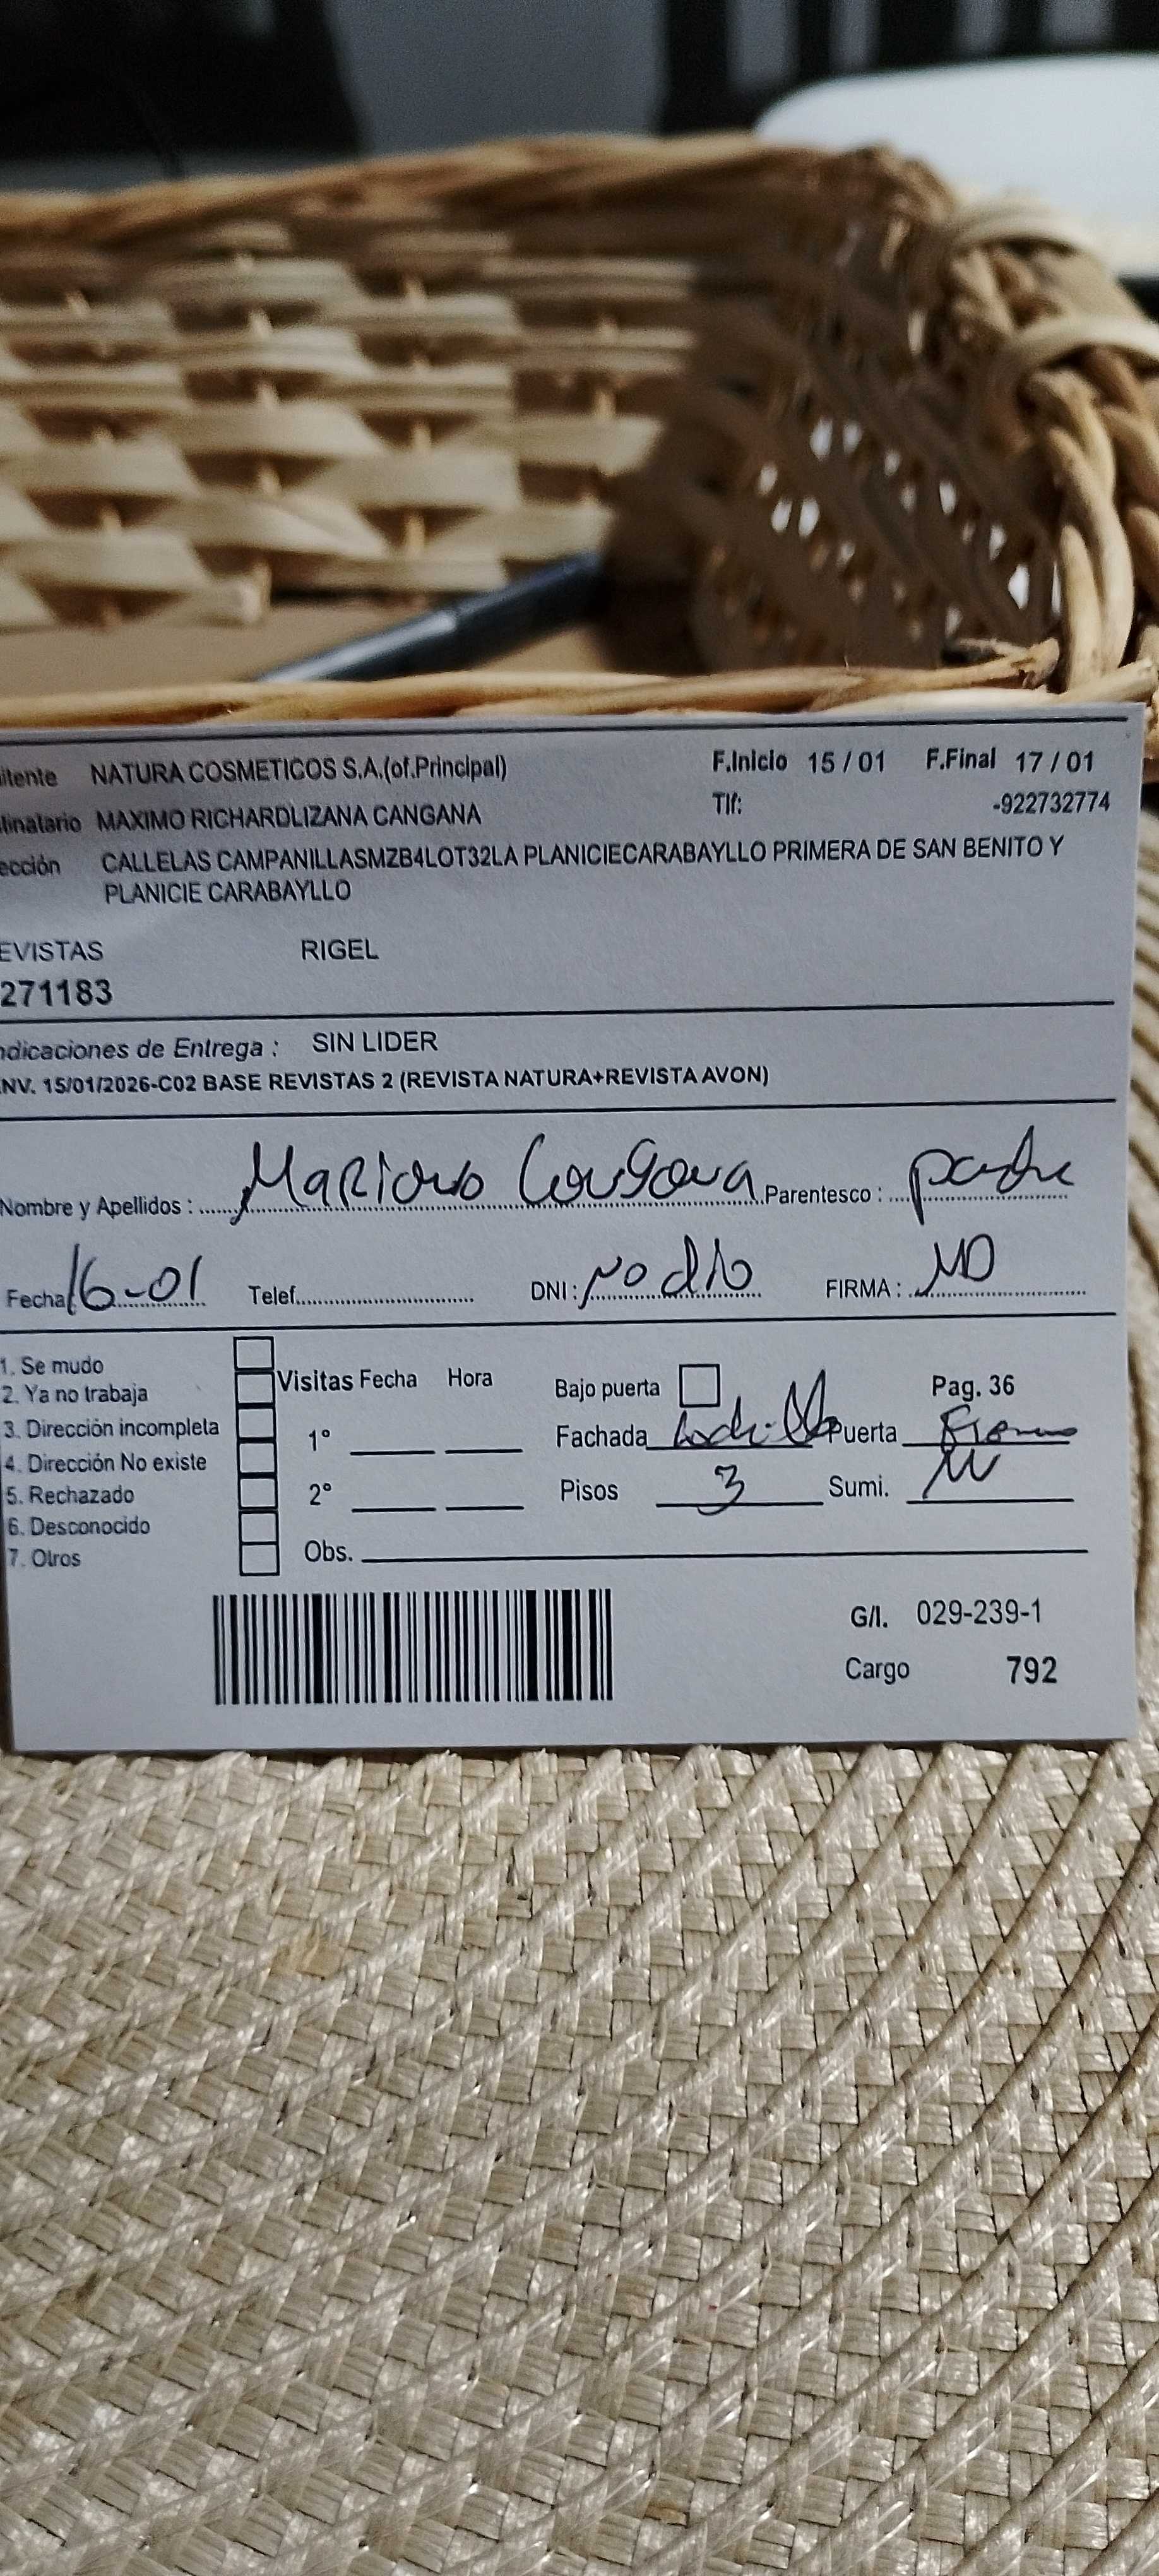 itente NATURA COSMETICOS S.A.(of.Principal) F.Inicio 15 / 01 F.Final 17 / 01
tinatario MAXIMO RICHARDLIZANA CANGANA Tlf: -922732774
ección CALLELAS CAMPANILLASMZB4LOT32LA PLANICIECARABAYLLO PRIMERA DE SAN BENITO Y
PLANICIE CARABAYLLO
EVISTAS RIGEL
271183
ndicaciones de Entrega : SIN LIDER
NV. 15/01/2026-C02 BASE REVISTAS 2 (REVISTA NATURA+REVISTA AVON)
Nombre y Apellidos : Mariano Cangana Parentesco : padre
Fecha 16-01 Telef. DNI : no dio FIRMA : NO
1. Se mudo
2. Ya no trabaja
3. Dirección incompleta
4. Dirección No existe
5. Rechazado
6. Desconocido
7. Otros
Visitas Fecha Hora
1°
2°
Bajo puerta Pag. 36
Fachada Ladrillo Puerta
Pisos 3 Sumi.
Obs.
G/I. 029-239-1
Cargo 792